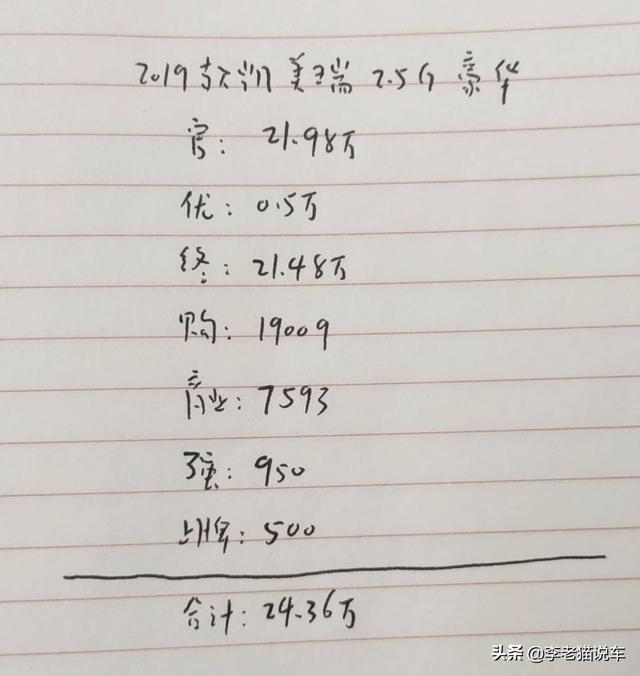 2019款凯美瑞 2.5G 豪华
官: 21.98万
优: 0.5万
终: 21.48万
购: 19009
商业: 7593
强: 950
上牌: 500
合计: 24.36万
头条 @李老猫说车